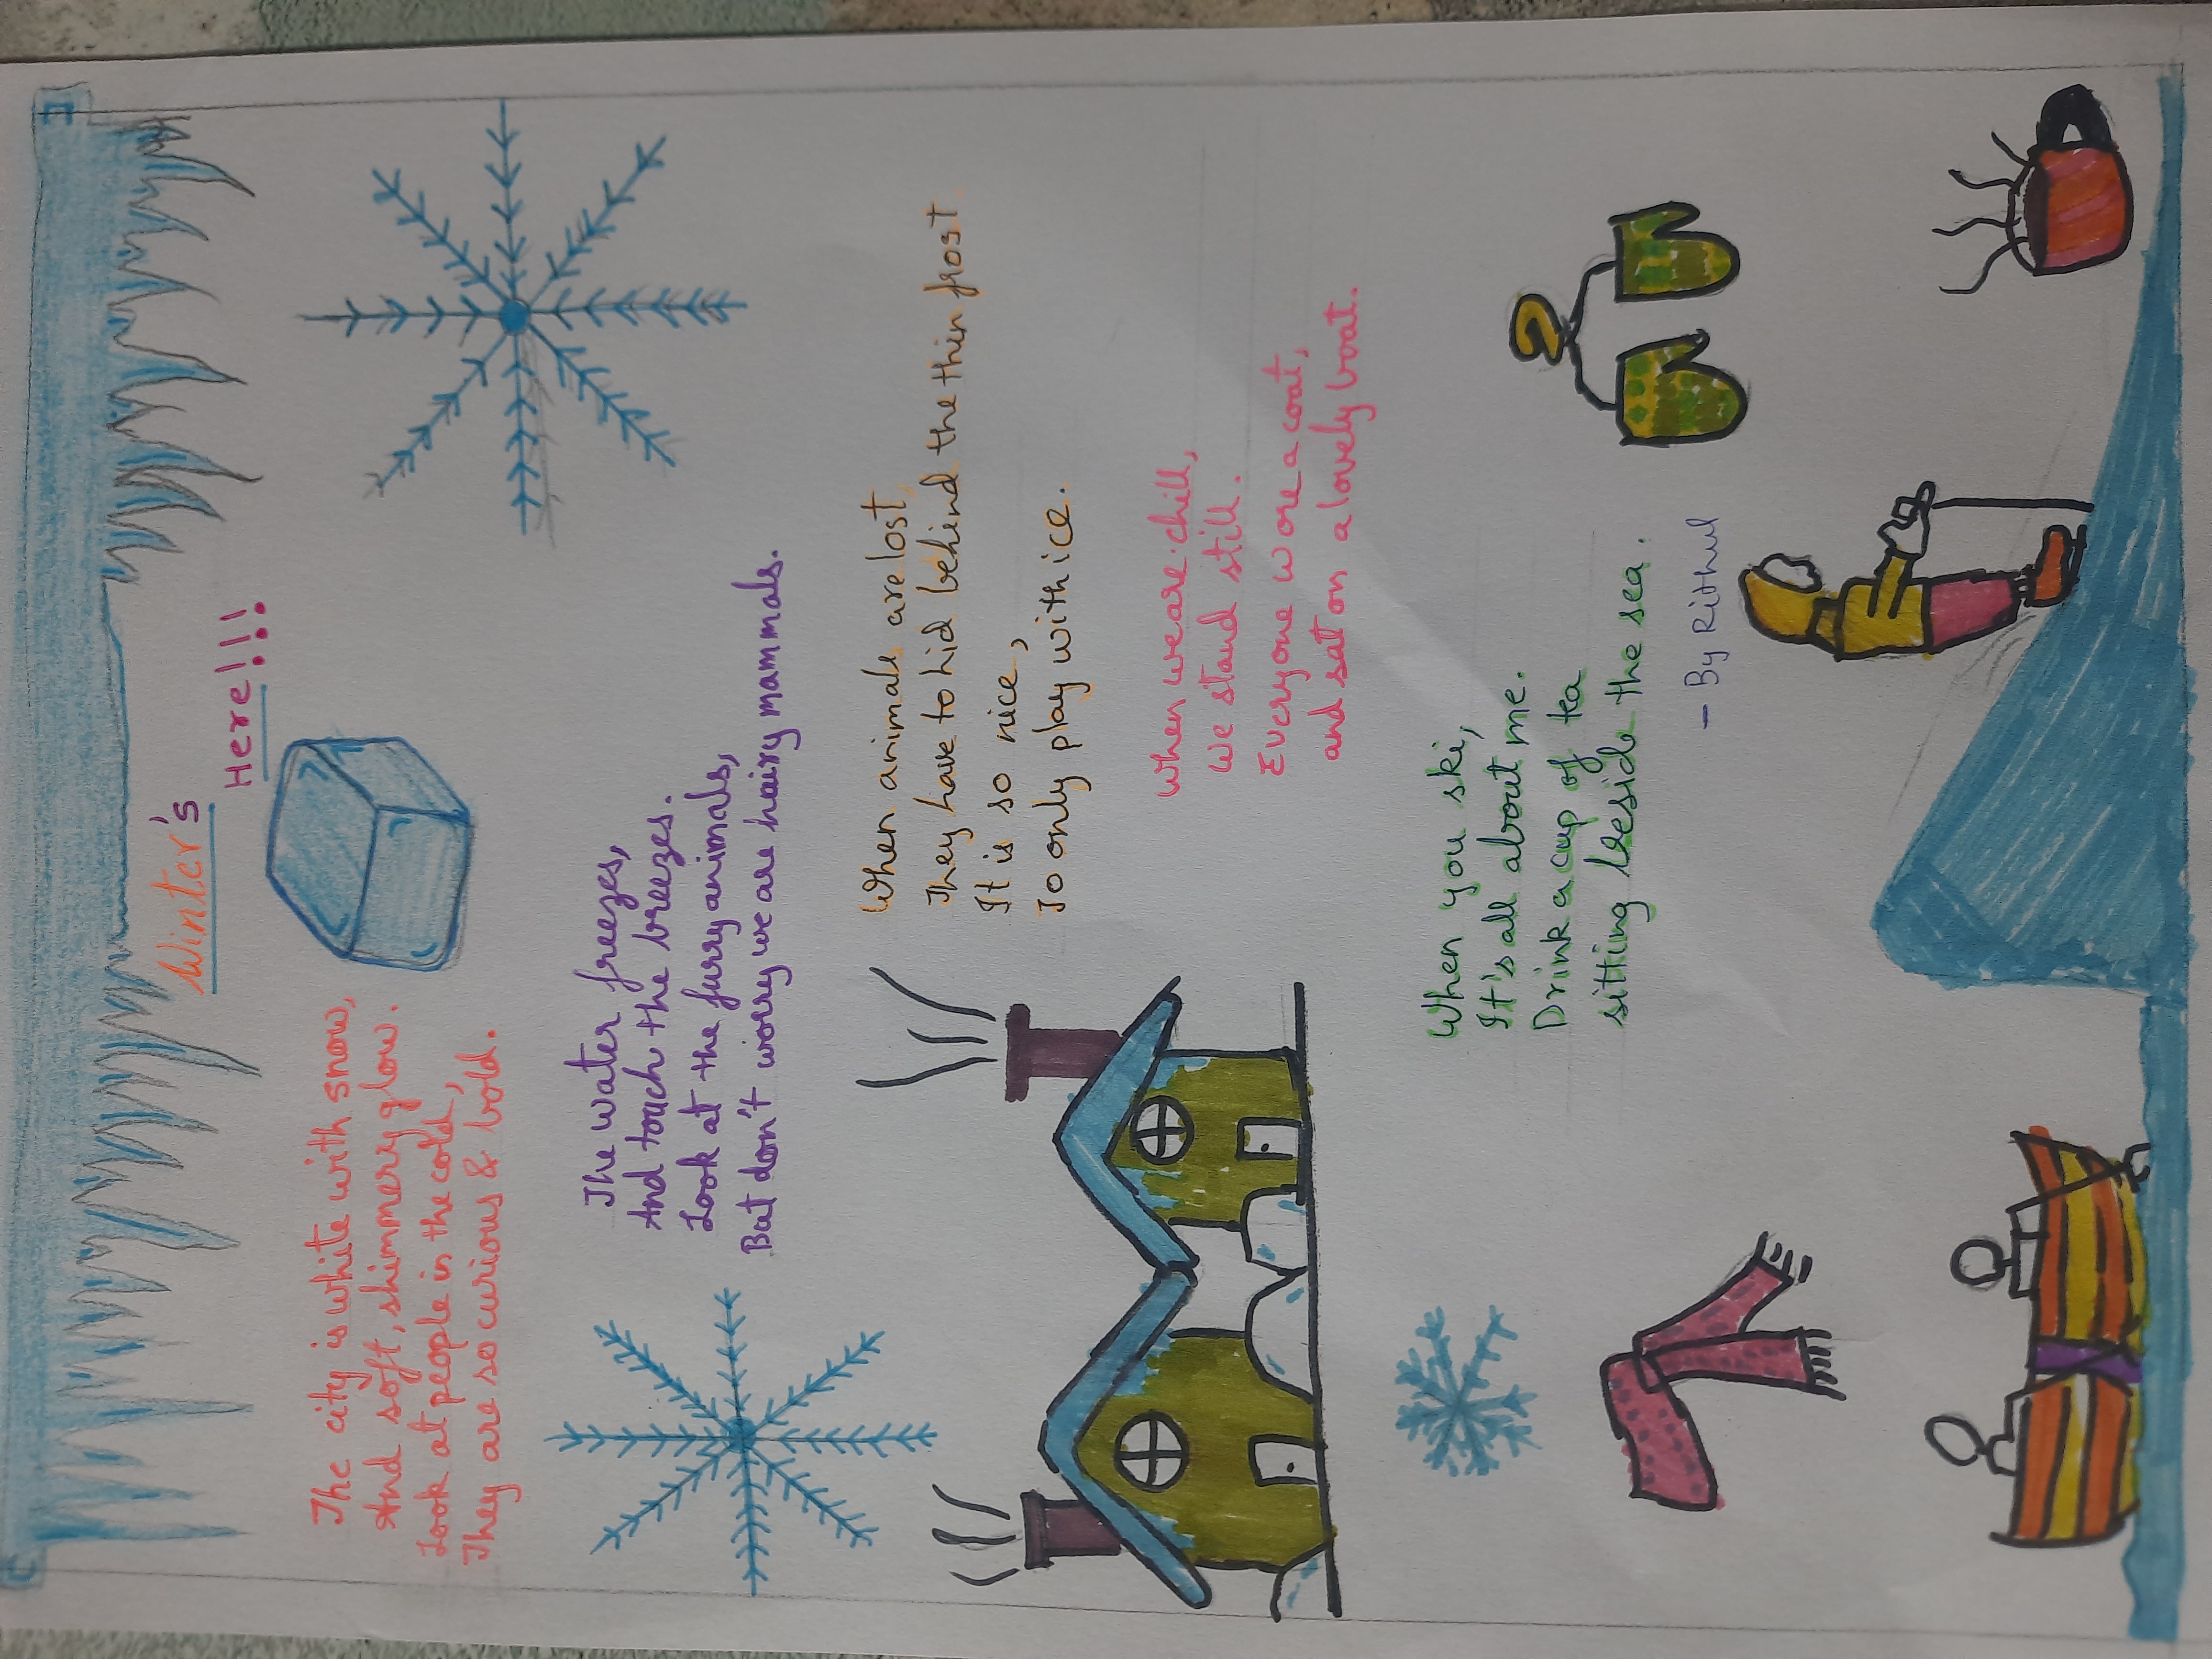 Winter's
Here!!!
The city is white with snow,
And soft, shimmery glow.
Look at people in the cold,
They are so curious & bold.
The water freezes,
And touch the breezes.
Look at the furry animals,
But don't worry we are hairy mammals.
When animals are lost,
They have to hid behind the thin frost.
It is so nice,
To only play with ice.
When we are chill,
We stand still.
Everyone wore a coat,
and sat on a lovely boat.
When you ski,
It's all about me.
Drink a cup of tea
sitting beside the sea.
- By Rithul